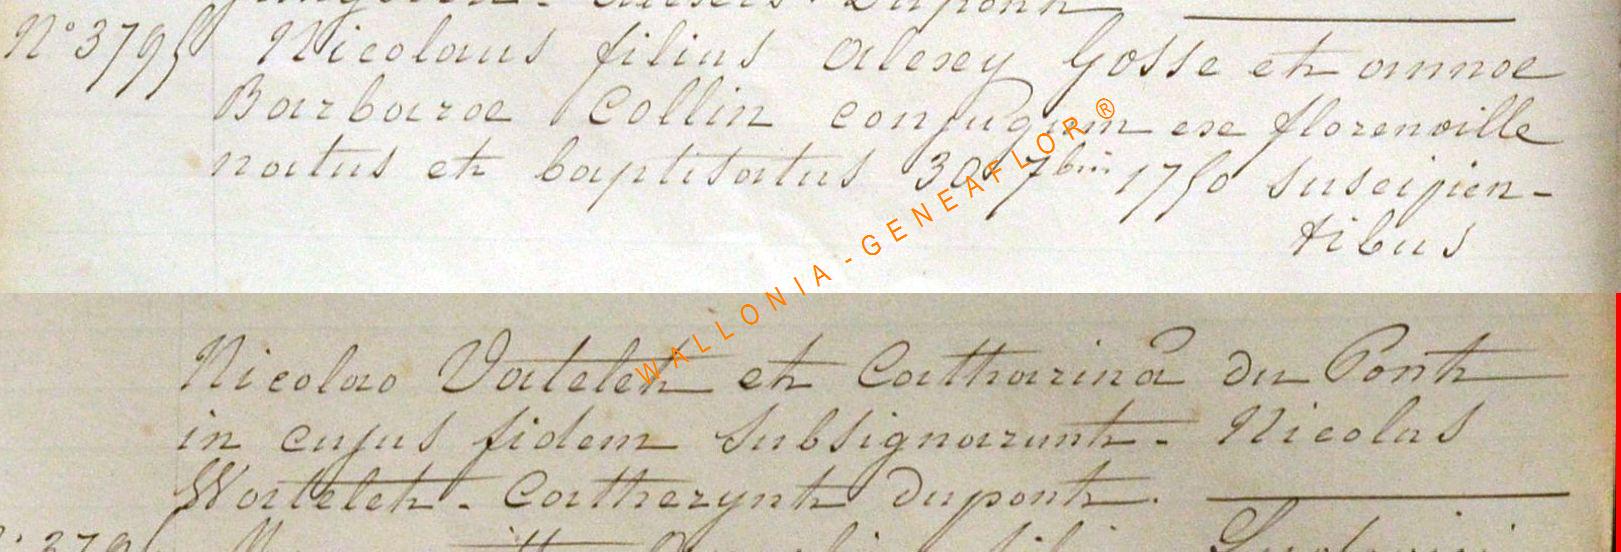 Dupont
N° 3795 Nicolaus filius Alexey Gosse et annae
Barbarae Collin conjugum ex florenville
natus et baptisatus 30 7bris 1750 suscipien-
tibus
WALLONIA - GENEAFLOR ®
Nicolao Vatelet et Catharina du Pont
in cujus fidem subsignarunt - Nicolas
Watelet - Catherynt dupont.